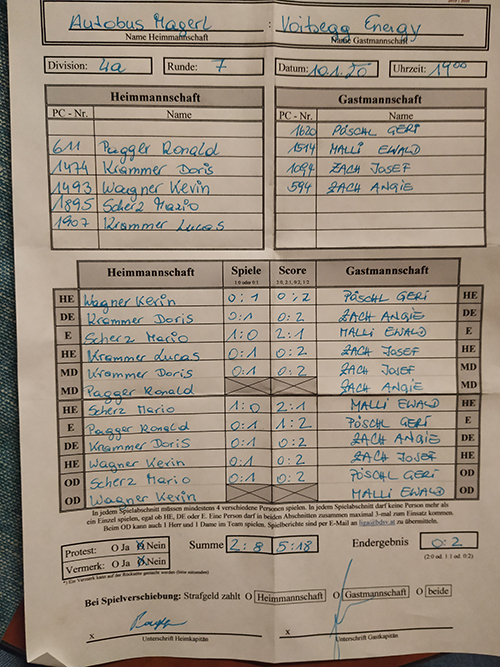 Autobus Magerl : Voitsegg Energy
Name Heimmannschaft Name Gastmannschaft
Division: 4a Runde: 7 Datum: 10.1.20 Uhrzeit: 19 00
Heimmannschaft Gastmannschaft
PC - Nr. Name PC - Nr. Name
1620 PÖSCHL GERI
611 Pagger Ronald 1514 MALLI EWALD
1474 Krammer Doris 1094 ZACH JOSEF
1493 Wagner Kevin 594 ZACH ANGIE
1895 Scherz Mario
1907 Krammer Lucas
Heimmannschaft Spiele Score Gastmannschaft
1:0 oder 0:1 2:0, 2:1, 0:2, 1:2
HE Wagner Kevin 0:1 0:2 PÖSCHL GERI HE
DE Krammer Doris 0:1 0:2 ZACH ANGIE DE
E Scherz Mario 1:0 2:1 MALLI EWALD E
HE Krammer Lucas 0:1 0:2 ZACH JOSEF HE
MD Krammer Doris 0:1 0:2 ZACH JOSEF MD
MD Pagger Ronald ZACH ANGIE MD
HE Scherz Mario 1:0 2:1 MALLI EWALD HE
E Pagger Ronald 0:1 1:2 PÖSCHL GERI E
DE Krammer Doris 0:1 0:2 ZACH ANGIE DE
HE Wagner Kevin 0:1 0:2 ZACH JOSEF HE
OD Scherz Mario 0:1 0:2 PÖSCHL GERI OD
OD Wagner Kevin MALLI EWALD OD
In jedem Spielabschnitt müssen mindestens 4 verschiedene Personen spielen. In jedem Spielabschnitt darf keine Person mehr als
ein Einzel spielen, egal ob HE, DE oder E. Eine Person darf in beiden Abschnitten zusammen maximal 3-mal zum Einsatz kommen.
Beim OD kann auch 1 Herr und 1 Dame im Team spielen. Spielberichte sind per E-Mail an zu übermitteln.
Protest: O Ja O Nein Summe 2:8 5:18 Endergebnis 0:2
Vermerk: O Ja O Nein (2:0 od. 1:1 od. 0:2)
Bei Spielverschiebung: Strafgeld zahlt O Heimmannschaft O Gastmannschaft O beide
x x
Unterschrift Heimkapitän Unterschrift Gastkapitän